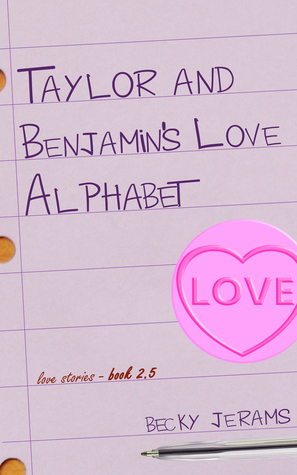 TAYLOR AND
BENJAMIN'S LOVE
ALPHABET
LOVE
love stories - book 2,5
BECKY JERAMS